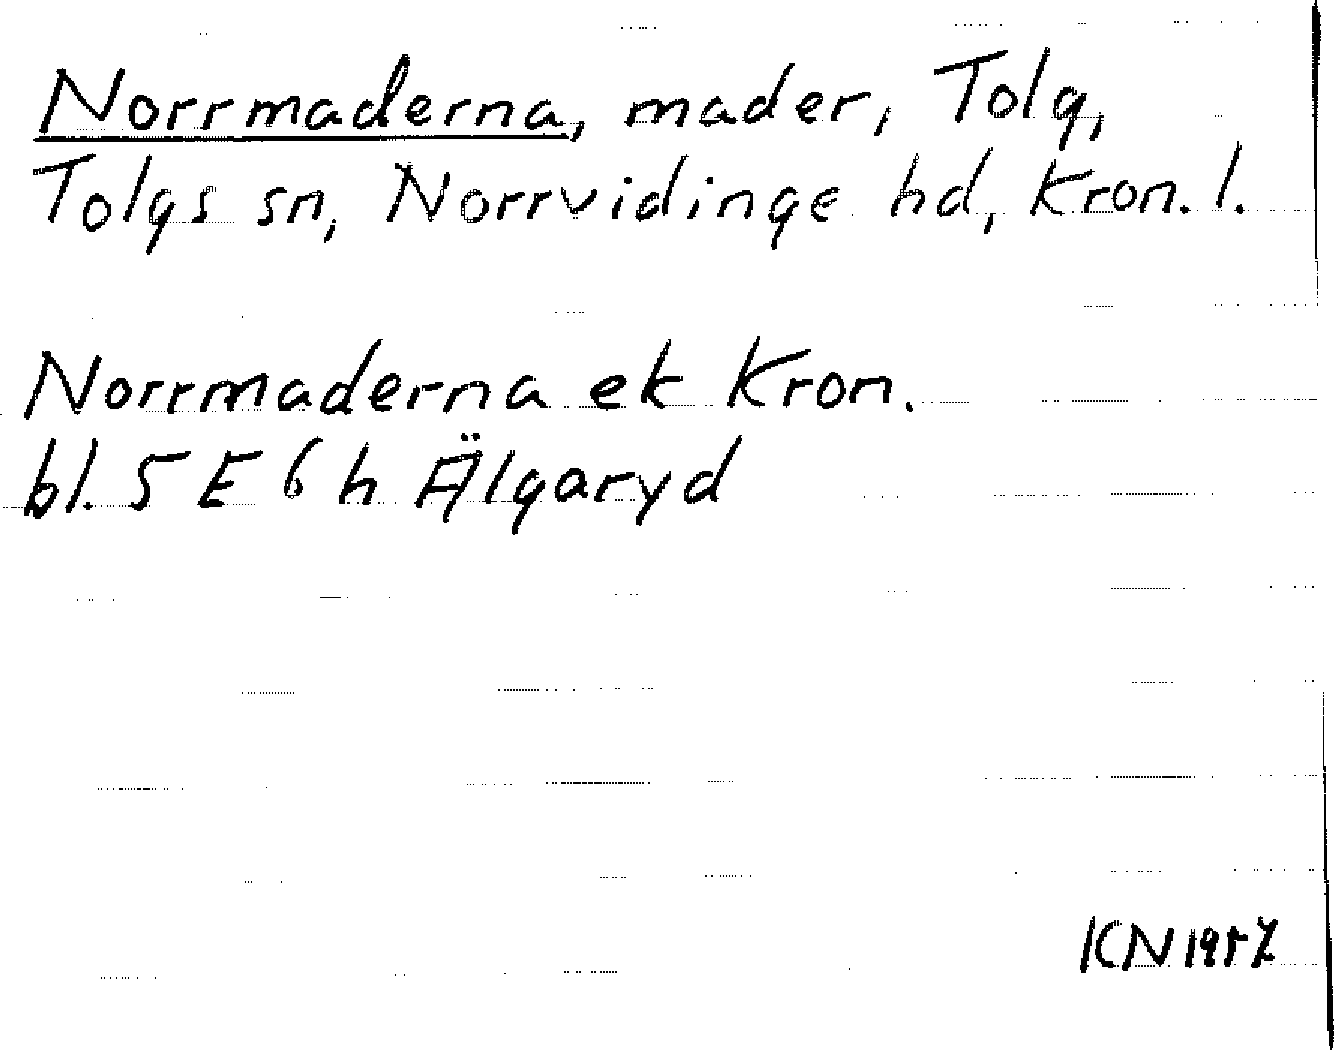 Norrmaderna, mader, Tolg,
Tolgs sn, Norrvidinge hd, Kron. l.
Norrmaderna ek Kron.
bl. 5 E 6 h Älgaryd
KN 1957